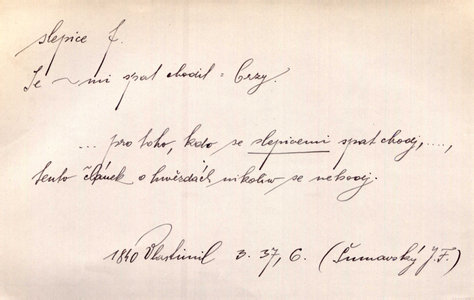 slepice f.
Se ~ mi spat chodit = brzy.
... pro toho, kdo se slepicemi spat chodj, ....,
tento článek o hwězdách nikoliw se nehodj.
1840 Vlastimil 3. 37, 6. (Šumavský J.F.)